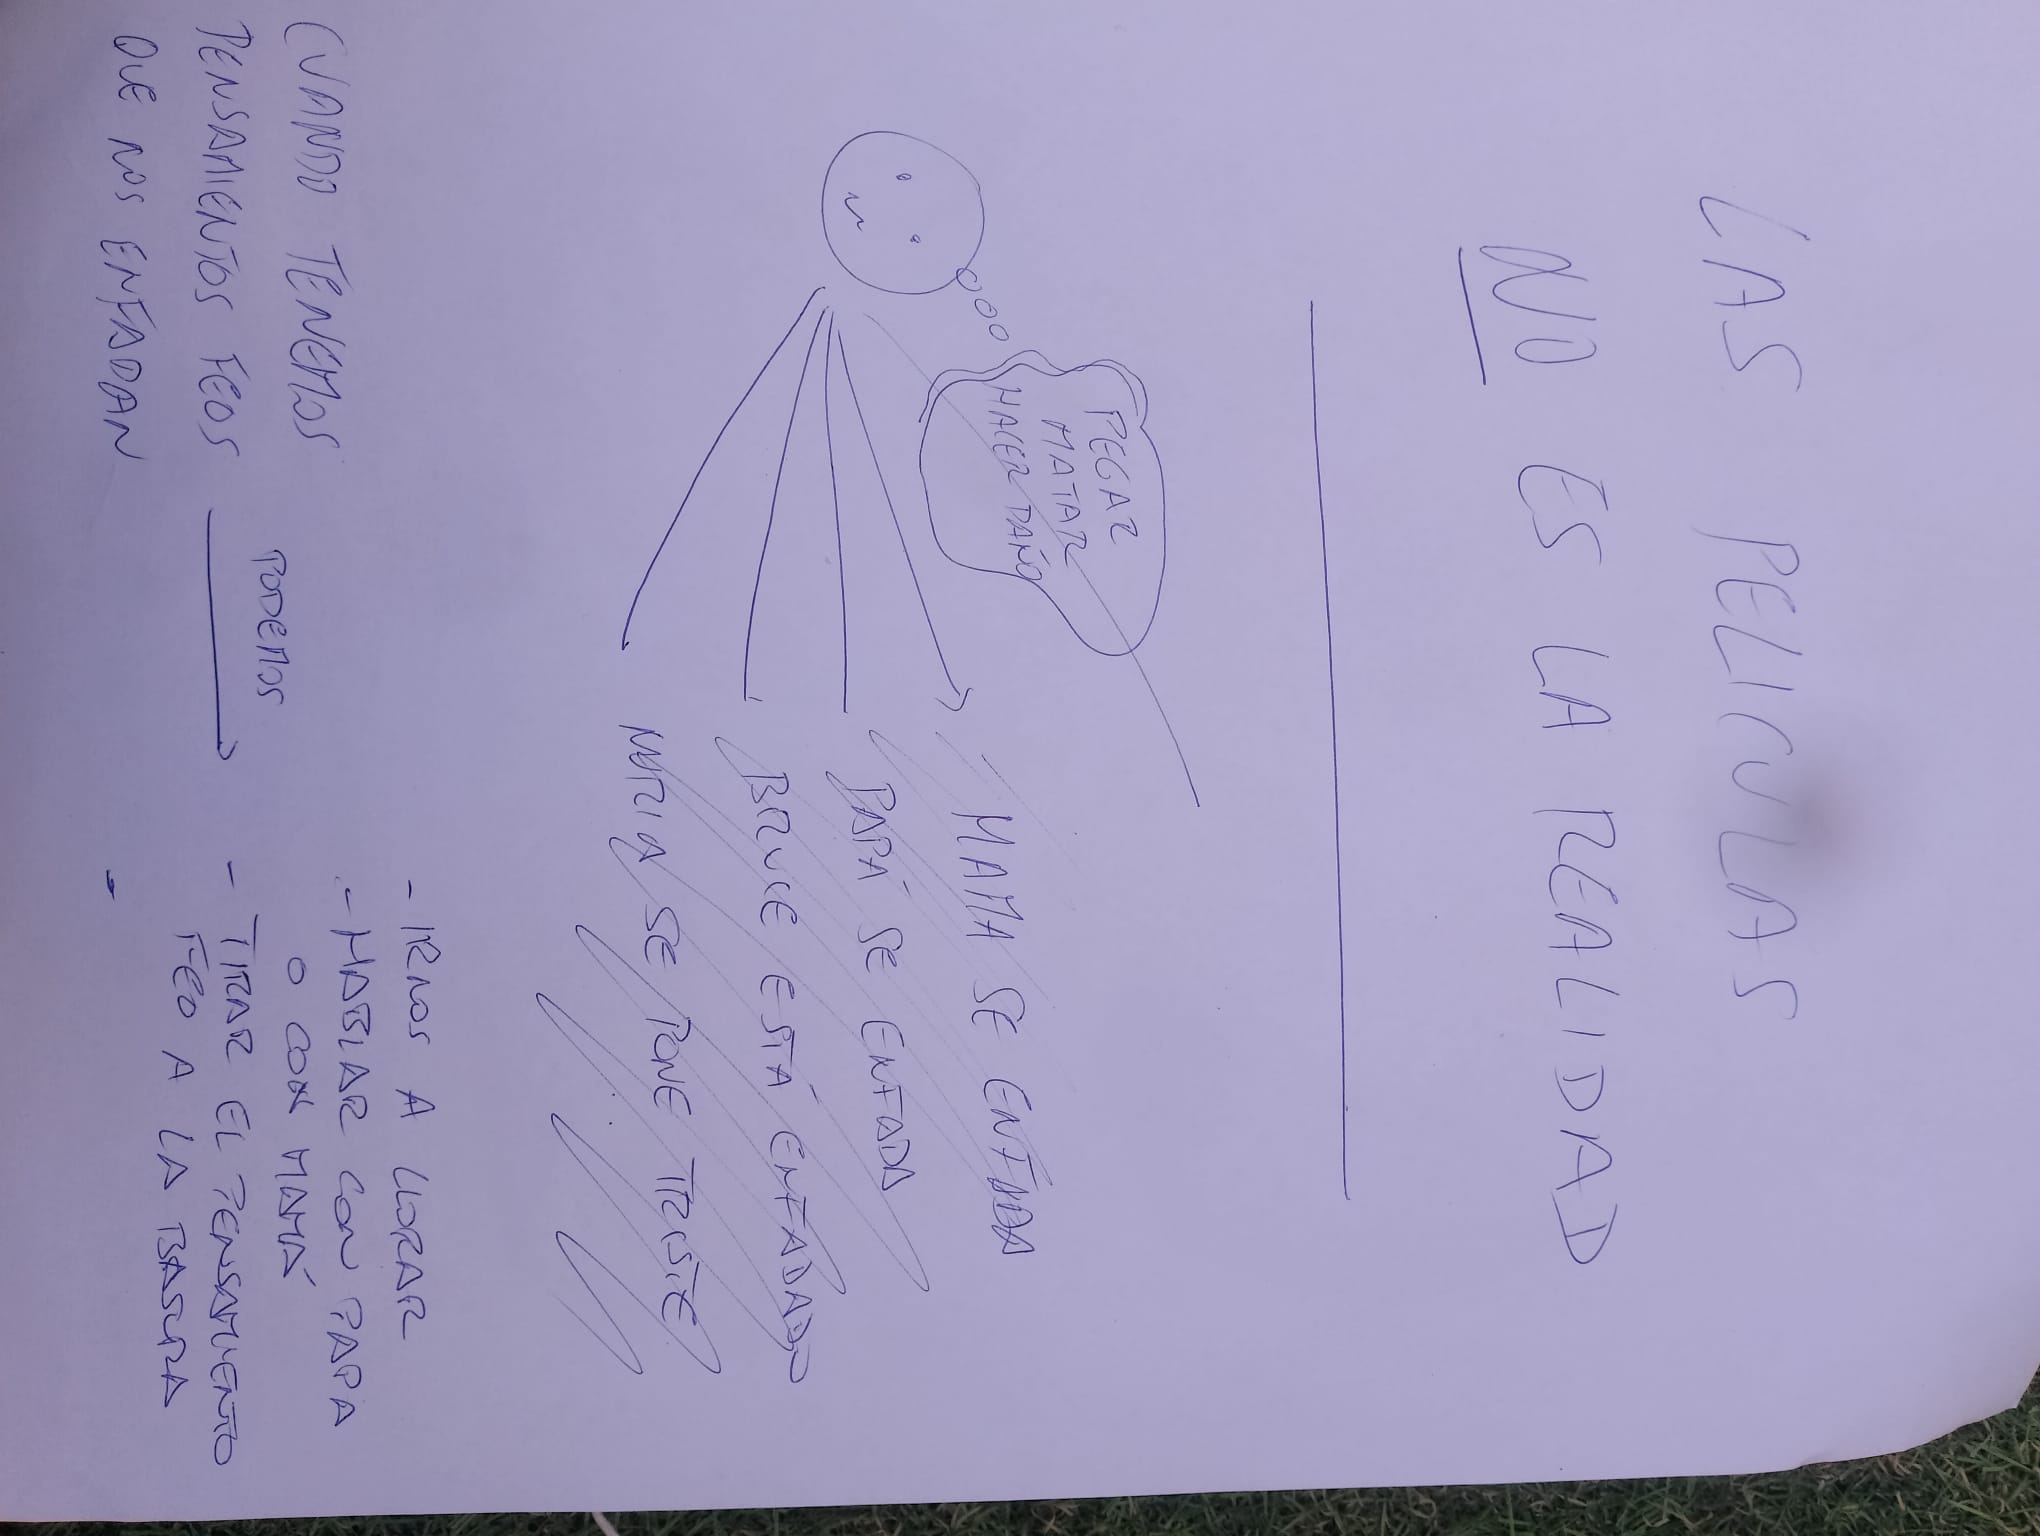 LAS PELICULAS
NO ES LA REALIDAD
PEGAR
MATAR
HACER DAÑO
MAMA SE ENFADA
PAPÁ SE ENFADA
BRUCE ESTÁ ENFADADO
NURIA SE PONE TRISTE
CUANDO TENEMOS
PENSAMIENTOS FEOS
QUE NOS ENFADAN
PODEMOS
- IRNOS A LLORAR
- HABLAR CON PAPA
O CON MAMÁ
- TIRAR EL PENSAMIENTO
FEO A LA BASURA
-